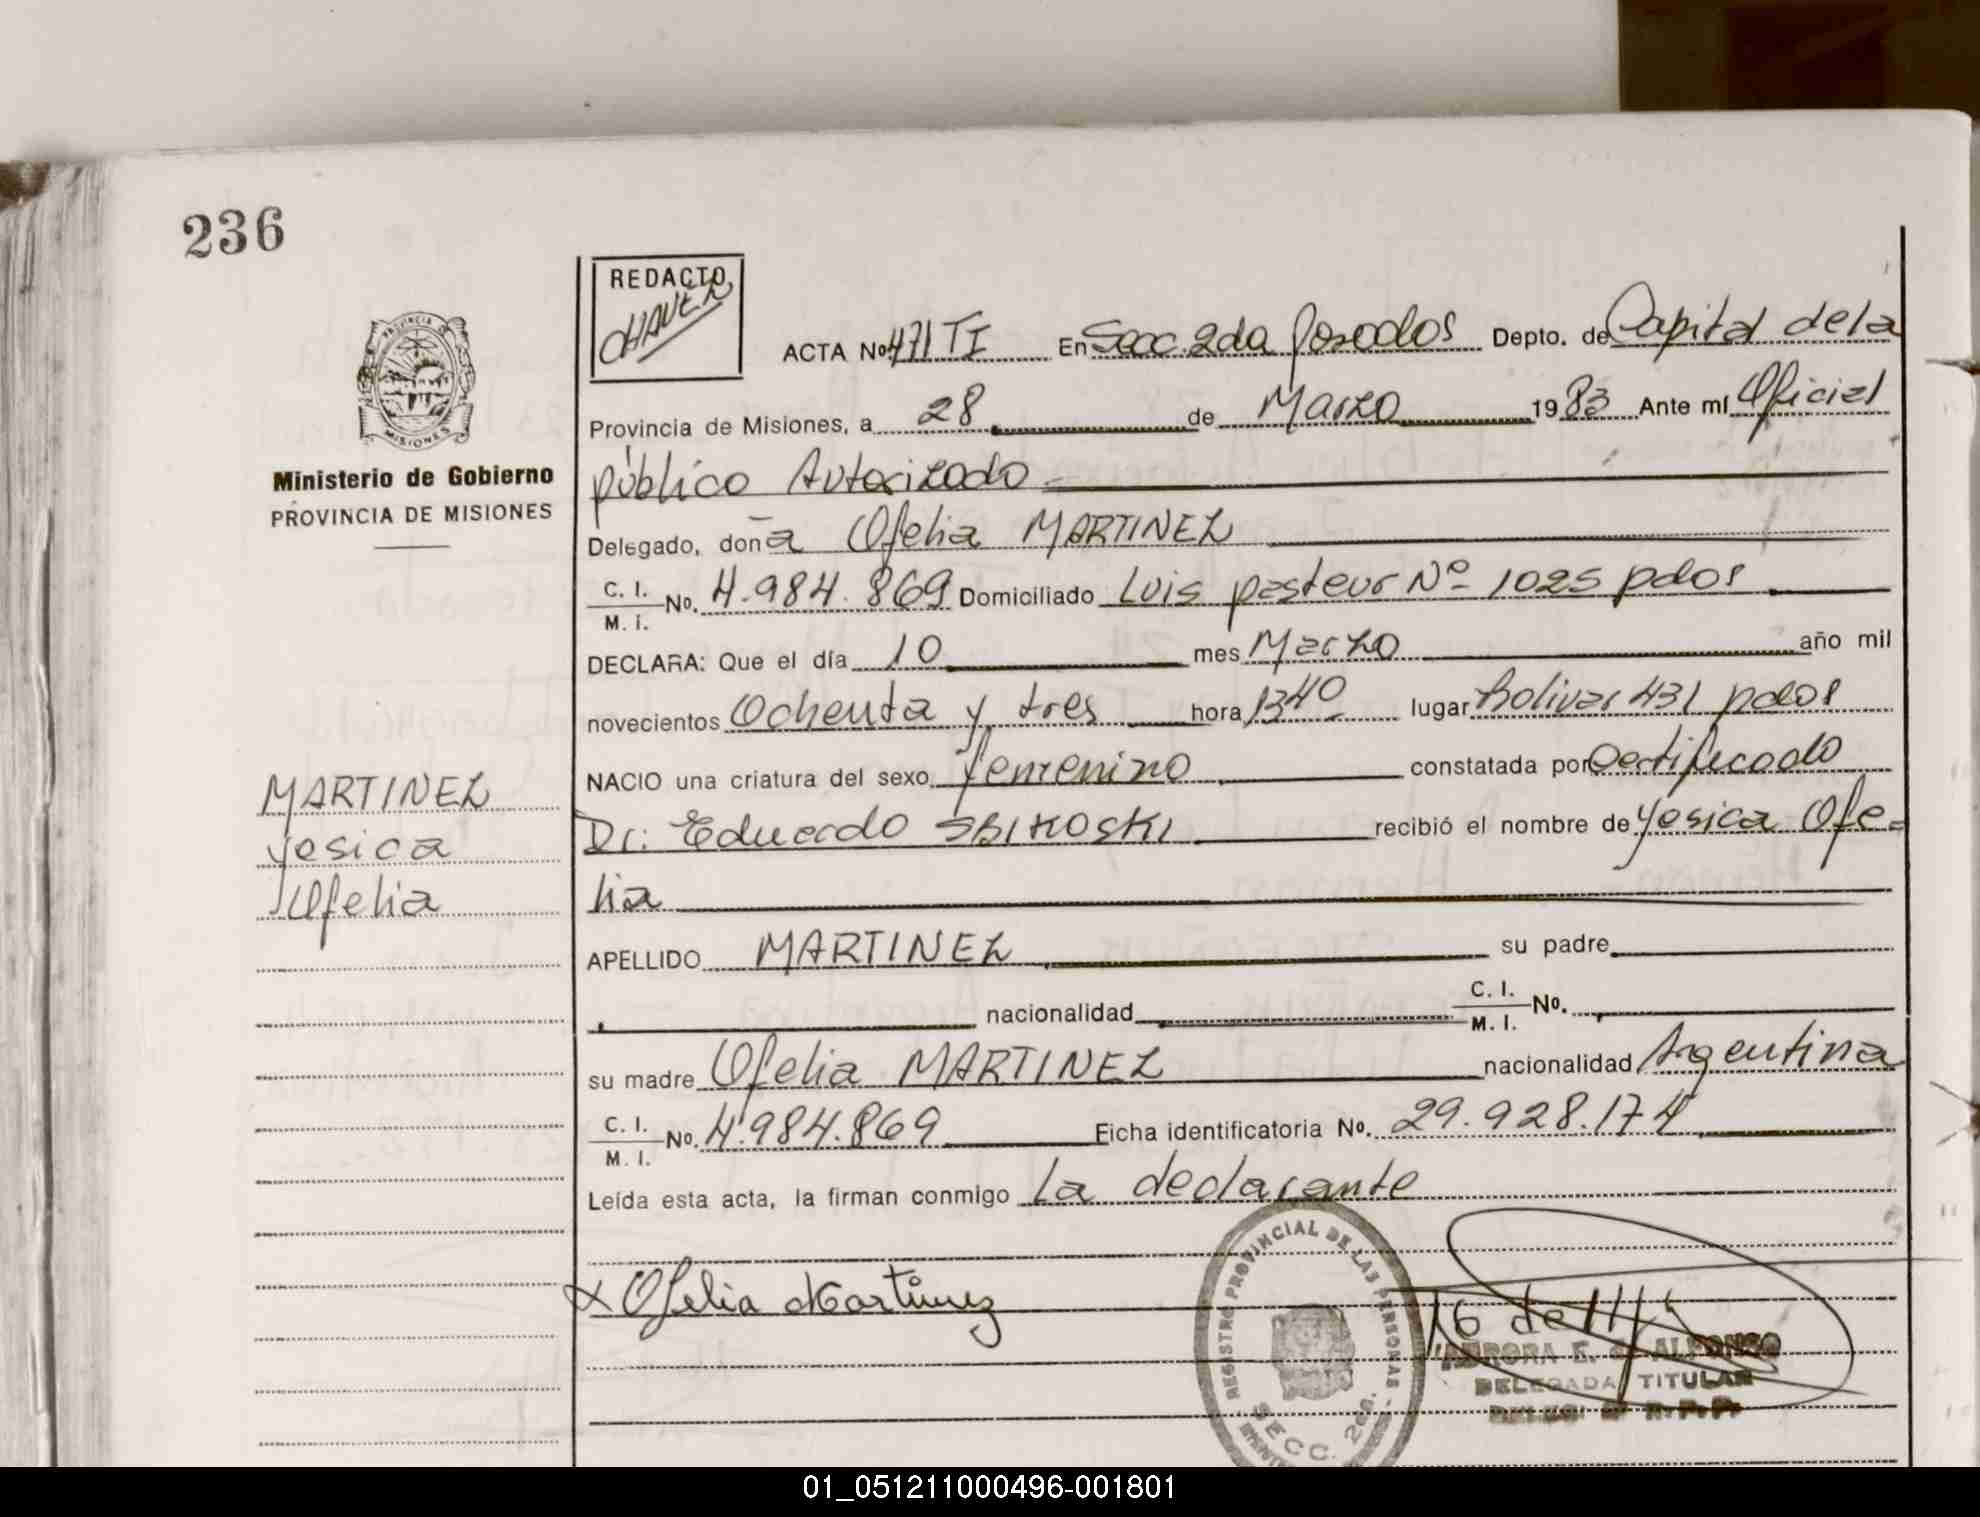 236
REDACTO
CHAVEZ
ACTA No 471 TI En Secc. 2da Posadas Depto. de Capital de la
Provincia de Misiones, a 28 de Marzo 1983 Ante mí Oficial
público Autorizado
Ministerio de Gobierno
PROVINCIA DE MISIONES
Delegado, doña Ofelia MARTINEZ
C. I. M. I. No. 4.984.869 Domiciliado Luis pasteur Nº 1025 pdas
DECLARA: Que el día 10 mes Marzo año mil
novecientos Ochenta y tres hora 1340 lugar Bolivar 431 pdas
NACIO una criatura del sexo femenino constatada por Certificado
Dr: Eduardo SBIKOSKI recibió el nombre de Yesica Ofe=
lia
MARTINEZ
Yesica
Ofelia
APELLIDO MARTINEZ su padre
nacionalidad C. I. M. I. No.
su madre Ofelia MARTINEZ nacionalidad Argentina
C. I. M. I. No. 4.984.869 Ficha identificatoria No. 29.928.174
Leída esta acta, la firman conmigo La declarante
x Ofelia Martinez
REGISTRO PROVINCIAL DE LAS PERSONAS
SECC. 2da.
AURORA E. ALFONSO
DELEGADA TITULAR
01_051211000496-001801